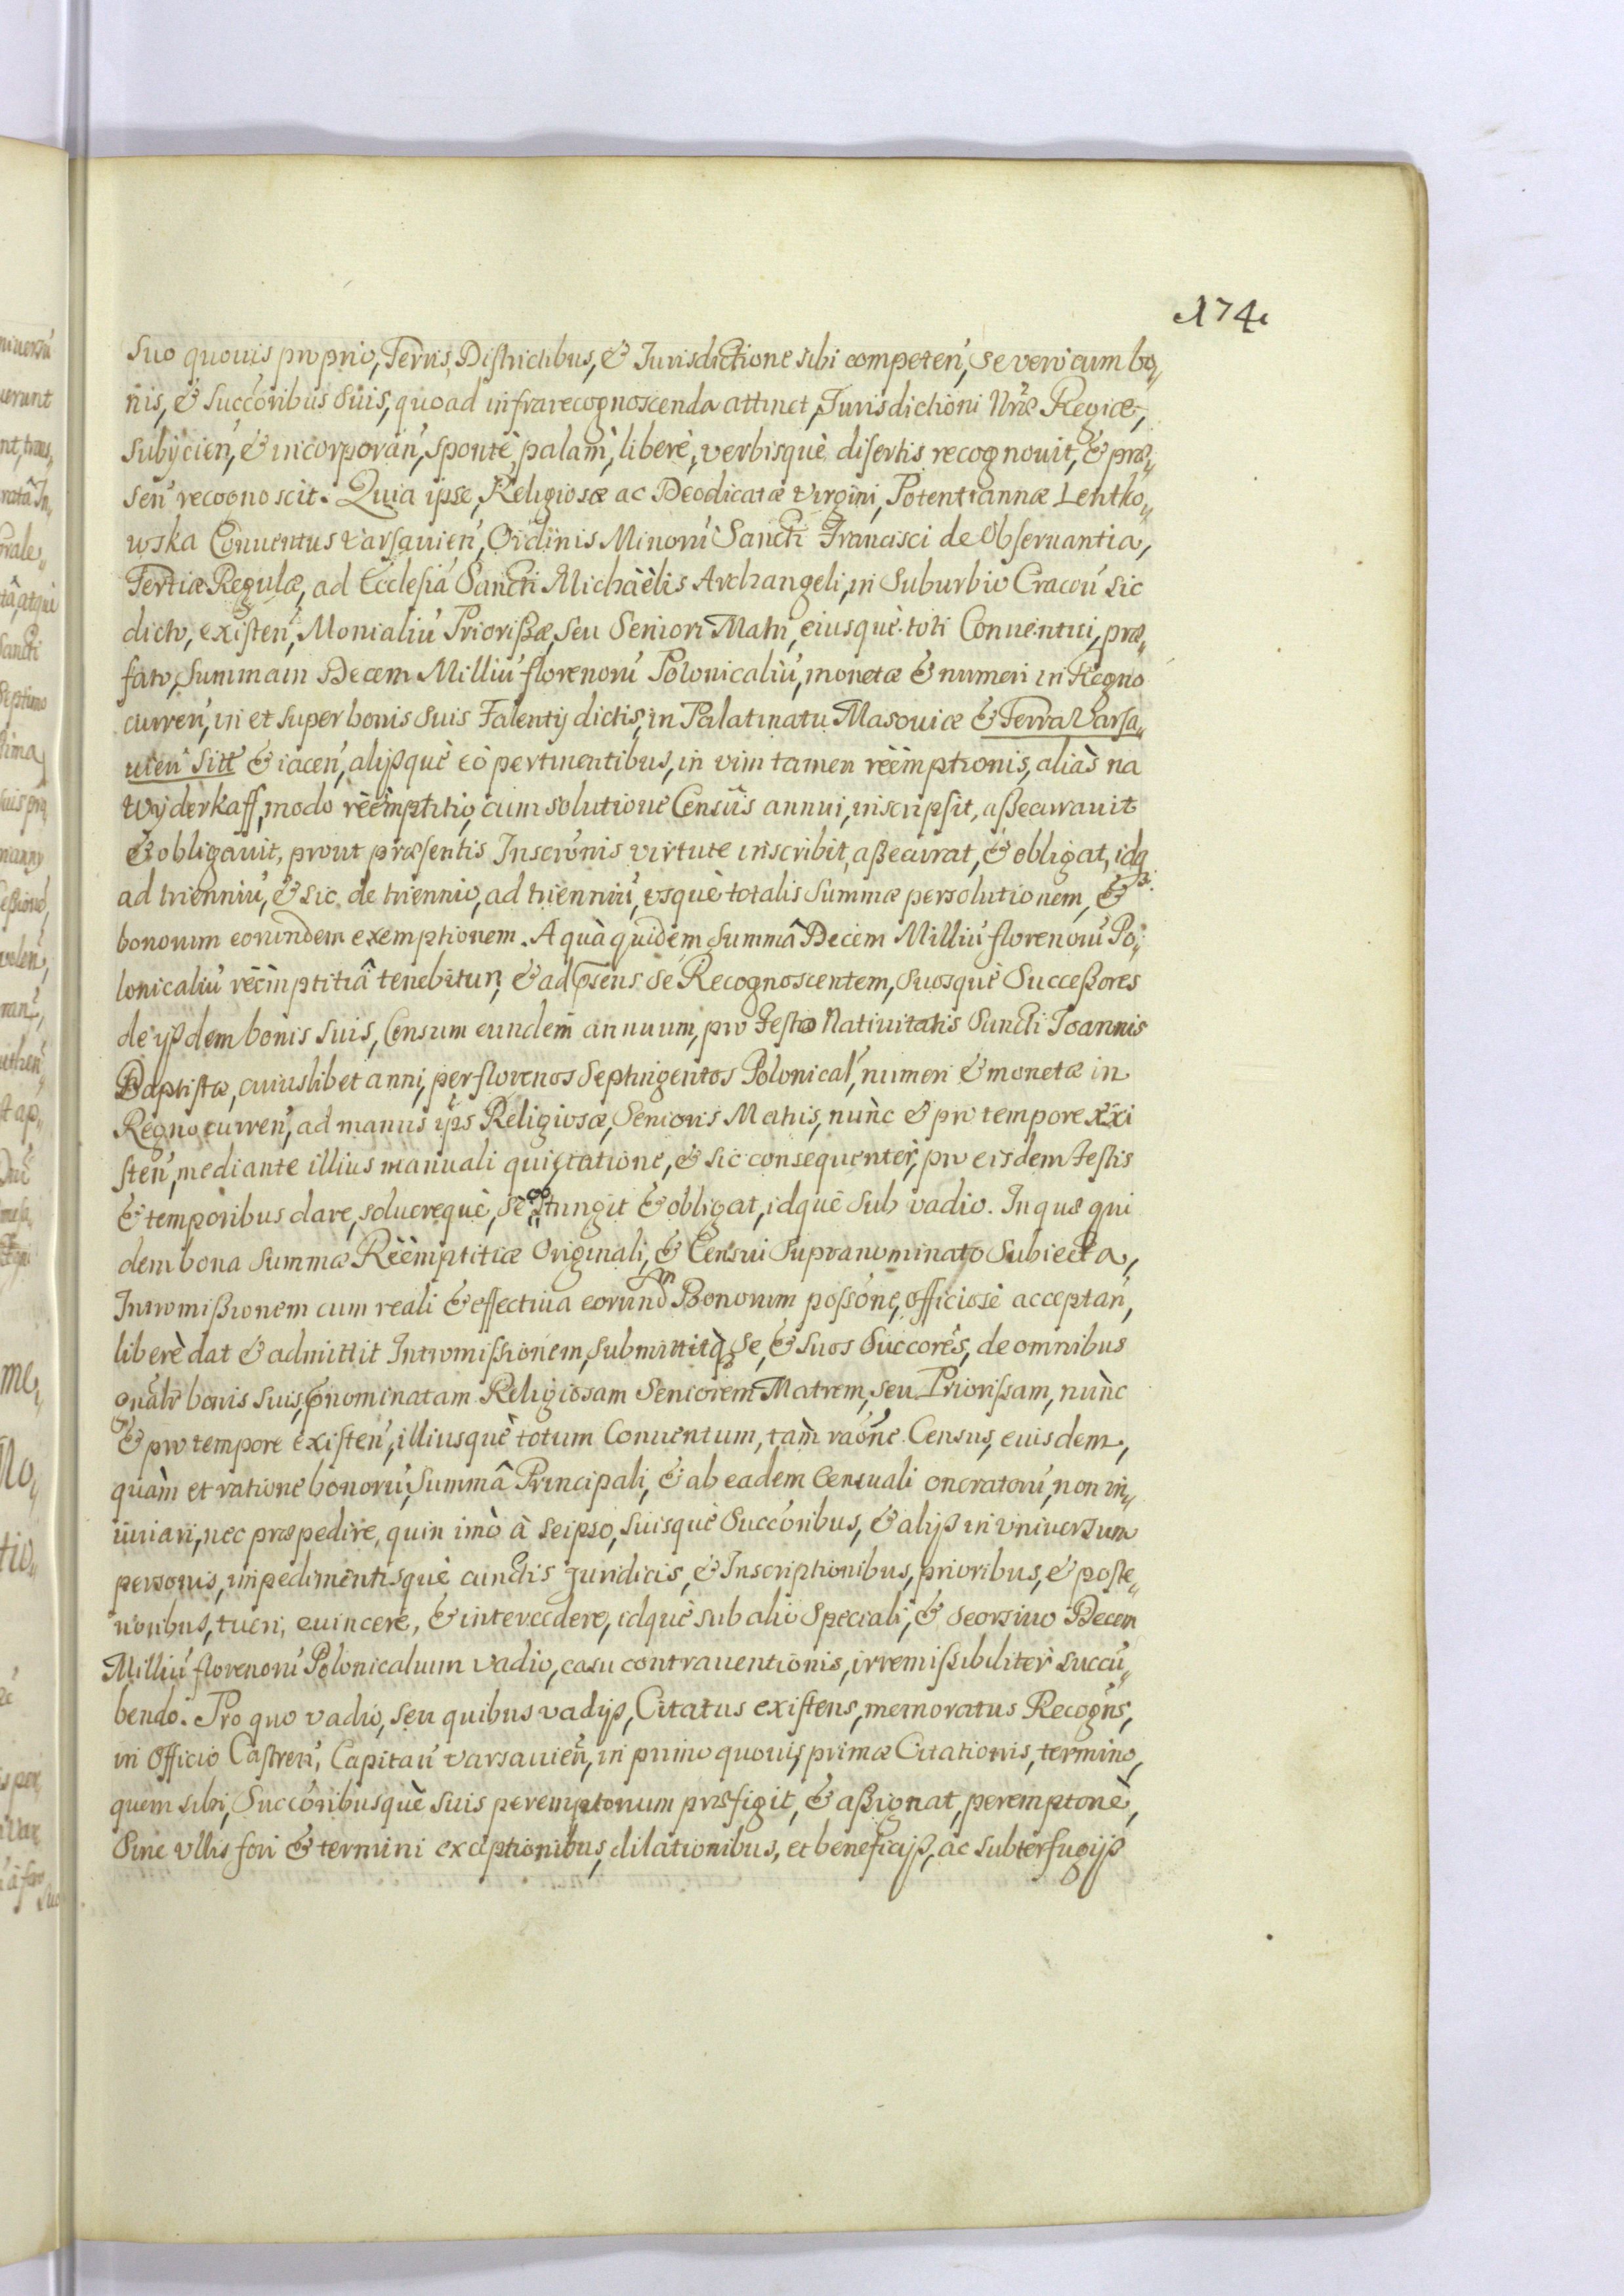 174.
suo quouis proprio, Terris, Districtibus, & Iurisdictione sibi competeń, se vero cum bo„
nis, & succoribus suis, quoad infrarecognoscenda attinet, Jurisdictioni Nrae Regiae,
subijcień, & incorporań, spontè, palam̀, liberè, verbisquè disertis recognouit, & prae„
seń recognoscit. Quia ipse, Religiosae ac Deodicatae Virgini, Potentiannae Lentko„
wska Conuentus Varsauień, Ordinis Minorú Sancti Francisci de Obseruantia,
Tertiae Regulae, ad Ecclesiá Sancti Michaèlis Archangeli, in Suburbio Cracoú sic
dicto, existeń, Monialiú Priorißae, seu Seniori Matri, eiusquè toti Conuentui, prae„
fato, summam Decem Milliú florenorú Polonicaliú, monetae & numeri in Regno
curreń, in et super bonis suis Falenty dictis, in Palatinatu Masouiae & Terra Varsa„
uień sitt & iaceń, alijßquè eò pertinentibus, in vim tamen rèèmptionis, aliàs na
Wyderkaff, modo rèèmptitio, cum solutione Censûs annui, inscripsit, aßecurauit
& obligauit, prout praesentis Inscrōnis virtute inscribit, aßecurat, & obligat, idq3
ad trienniú, & sic de triennio, ad trienniú, vsquè totalis summae persolutionem, &
bonorum eorundem exemptionem. A quà quidem summâ Decem Milliú florenorú Po„
lonicaliú rèèmptitiâ tenebitur, & ad psens se Recognoscentem, suosquè Succeßores
de ijßdem bonis suis, Censum eundem annuum, pro festo Natiuitatis Sancti Ioannis
Baptistae, cuiuslibet anni, per florenos Septingentos Polonical, numeri & monetae in
Regno curreń, ad manus ips Religiosae, Senioris Matris, nùnc & pro tempore exi
steń, mediante illius manuali quietatione, & sic consequenter, pro eisdem festis
& temporibus dare, soluerequè, se obstringit & obligat, idquè sub vadio. In quae qui
dem bona summae Rèèmptitiae Originali, & Censui supranominato subiecta,
Intromißionem cum reali & effectiua eorundm Bonorum possōne, officiosè acceptań,
liberè dat & admittit Intromissionem, submittitq3 se, & suos Succorès, de omnibus
gnalr bonis suis, pnominatam Religiosam Seniorem Matrem, seu Priorissam, nùnc
& pro tempore existeń, illiusquè totum Conuentum, tam̀ raōne Census, euisdem,
quàm et ratione bonorú, summâ Principali, & ab eadem Censuali oneratorú, non in„
iuriari, nec praepedire, quin imò à seipso, suisquè Succoribus, & alijß in vniuersum
personis, impedimentisquè cunctis Juridicis, & Inscriptionibus, prioribus, & poste„
rioribus, tueri, euincere, & intercedere, idquè sub alio Speciali, & seorsiuo Decem
Milliú florenorú Polonicalium vadio, casu contrauentionis, irremissibiliter succú„
bendo. Pro quo vadio, seu quibus vadijß, Citatus existens, memoratus Recogns,
in Officio Castreń, Capitań Varsauień, in primo quouis, primae Citationis, termino,
quem sibi, Succoribusquè suis peremptorium praefigit, & aßignat, peremptoriè,
Sine vllis fori & termini exceptionibus, dilationibus, et beneficijß, ac subterfugijß